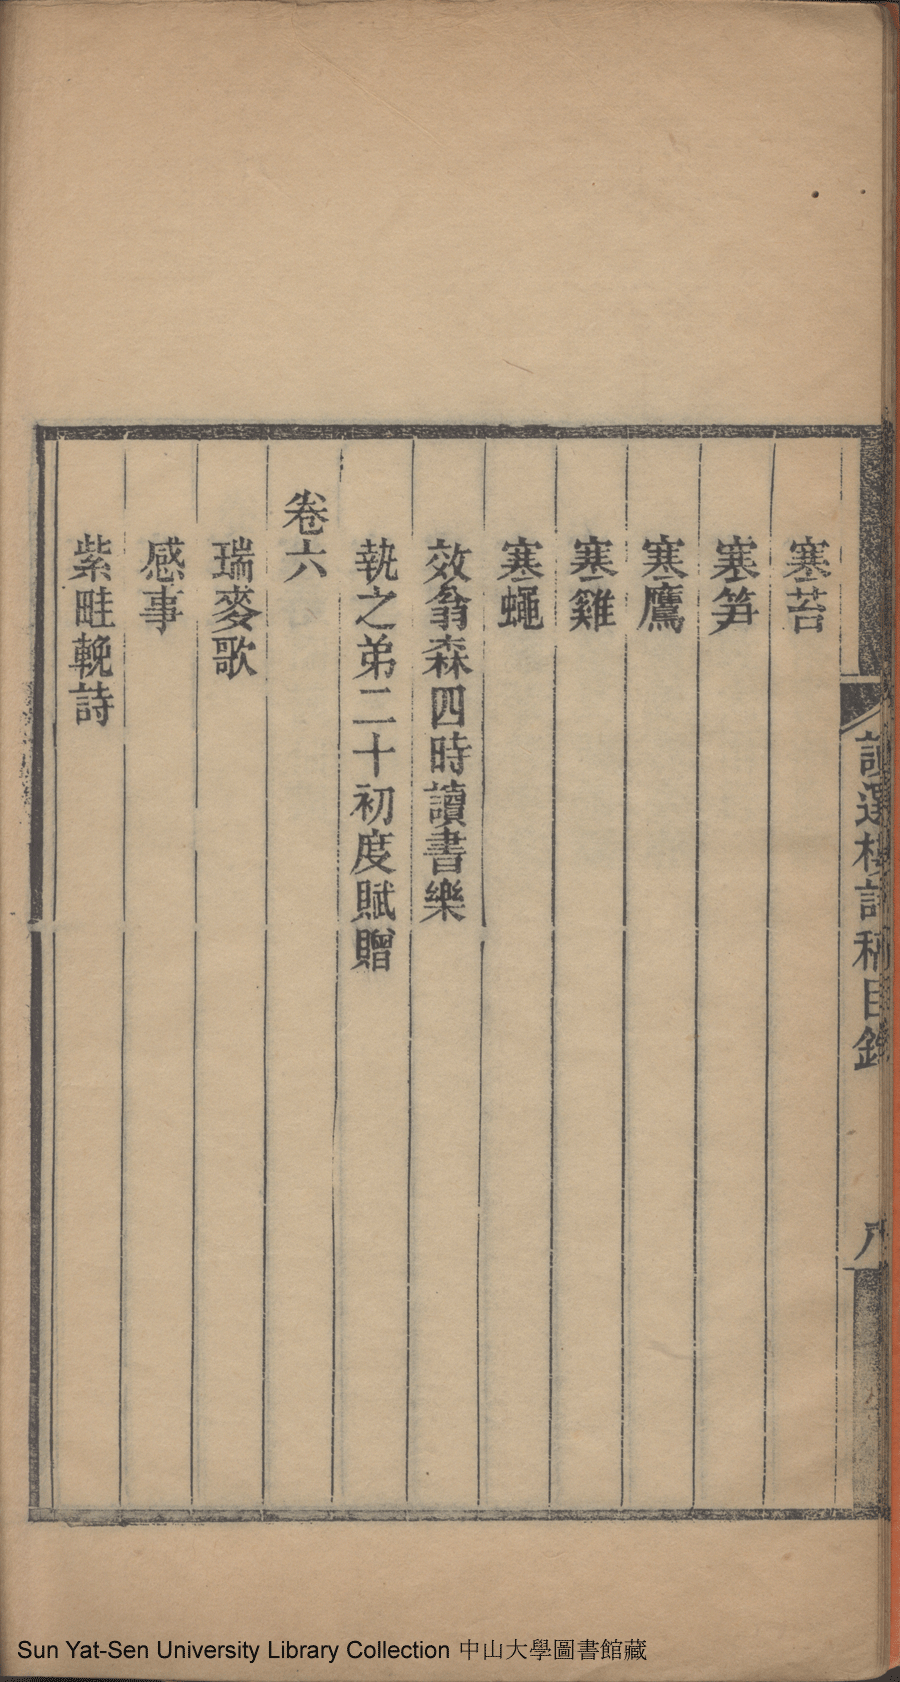 寒苔
寒笋
寒鷹
寒雞
寒蠅
效翁森四時讀書樂
執之弟二十初度賦贈
卷六
瑞麥歌
感事
紫畦輓詩
讀選樓詩稿目錄
八
Sun Yat-Sen University Library Collection 中山大學圖書館藏